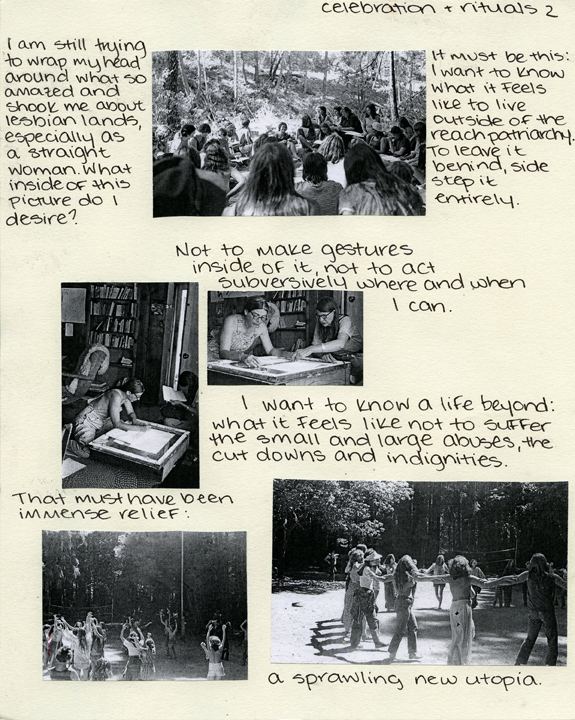 celebration + rituals 2
I am still trying
to wrap my head
around what so
amazed and
shook me about
lesbian lands,
especially as
a straight
woman. What
inside of this
picture do I
desire?
It must be this:
I want to know
what it feels
like to live
outside of the
reach patriarchy.
To leave it
behind, side
step it
entirely.
Not to make gestures
inside of it, not to act
subversively where and when
I can.
I want to know a life beyond:
what it feels like not to suffer
the small and large abuses, the
cut downs and indignities.
That must have been
immense relief:
a sprawling new utopia.